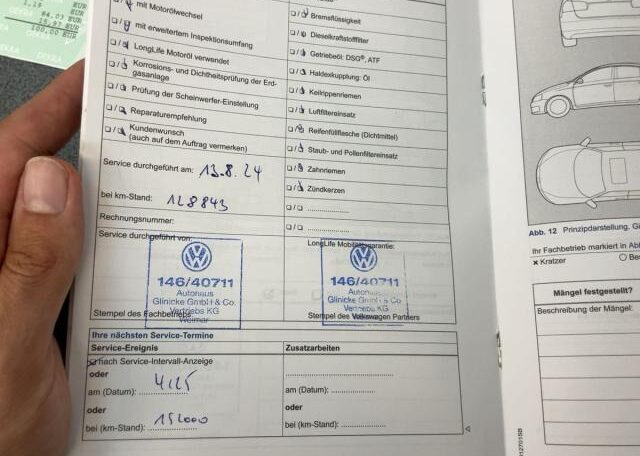 1,19 EUR
84,03 EUR
15,97 EUR
100,00 EUR
DEKRA
mit Motorölwechsel
mit erweitertem Inspektionsumfang
LongLife Motoröl verwendet
Korrosions- und Dichtheitsprüfung der Erd-
gasanlage
Prüfung der Scheinwerfer-Einstellung
Reparaturempfehlung
Kundenwunsch
(auch auf dem Auftrag vermerken)
Service durchgeführt am: 13.8.24
bei km-Stand: 128843
Rechnungsnummer:
Service durchgeführt von:
146/40711
Autohaus
Glinicke GmbH & Co.
Vertriebs KG
Weimar
Stempel des Fachbetriebs
Bremsflüssigkeit
Dieselkraftstofffilter
Getriebeöl: DSG®, ATF
Haldexkupplung: Öl
Keilrippenriemen
Luftfiltereinsatz
Reifenfüllflasche (Dichtmittel)
Staub- und Pollenfiltereinsatz
Zahnriemen
Zündkerzen
LongLife Mobilitätsgarantie:
146/40711
Autohaus
Glinicke GmbH & Co.
Vertriebs KG
Weimar
Stempel des Volkswagen Partners
Ihre nächsten Service-Termine
Service-Ereignis Zusatzarbeiten
nach Service-Intervall-Anzeige
oder
am (Datum): 4/25 am (Datum):
oder oder
bei (km-Stand): 152000 bei (km-Stand):
Abb. 12 Prinzipdarstellung.
Ihr Fachbetrieb markiert in Ab
× Kratzer
Mängel festgestellt?
Beschreibung der Mängel: